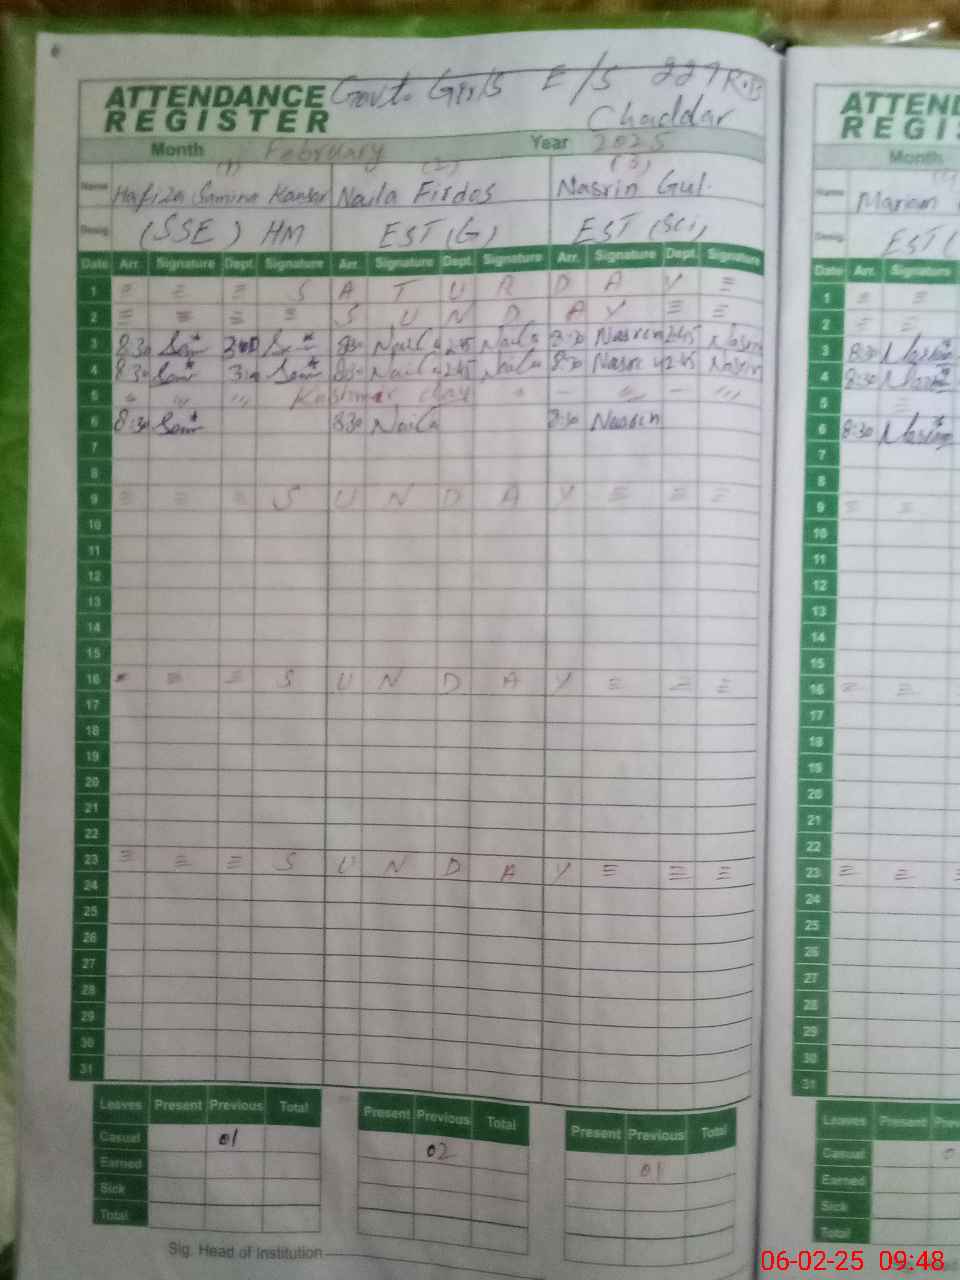 ATTENDANCE REGISTER Govt. Girls E/S 229 R.B Chaddar
Month February Year 2025
(1) (2) (3)
Name Hafiza Samina Kansar Naila Firdos Nasrin Gul.
Desig. (SSE) HM EST (G) EST (Sci)
Date Arr. Signature Dept. Signature Arr. Signature Dept. Signature Arr. Signature Dept. Signature
1 S A T U R D A Y
2 S U N D A Y
3 8:30 3:00 8:30 Naila 2:45 Naila 8:30 Nasreen 2:45 Nasrin
4 8:30 8:30 Naila 2:45 Naila 8:30 2:45 Nasrin
5 Kashmir day
6 8:30 8:30 Naila 8:30 Nasreen
7
8
9 S U N D A Y
10
11
12
13
14
15
16 S U N D A Y
17
18
19
20
21
22
23 S U N D A Y
24
25
26
27
28
29
30
31
Leaves Present Previous Total Present Previous Total Present Previous Total
Casual 01 02 01
Earned
Sick
Total
Sig. Head of Institution
ATTEND
REGIS
Month
Name Mariam
Desig. EST (
Date Arr. Signature
1
2
3 8:30
4 8:30
5
6 8:30
7
8
9
10
11
12
13
14
15
16
17
18
19
20
21
22
23
24
25
26
27
28
29
30
31
Leaves Present Prev
Casual 0
Earned
Sick
Total
06-02-25 09:48